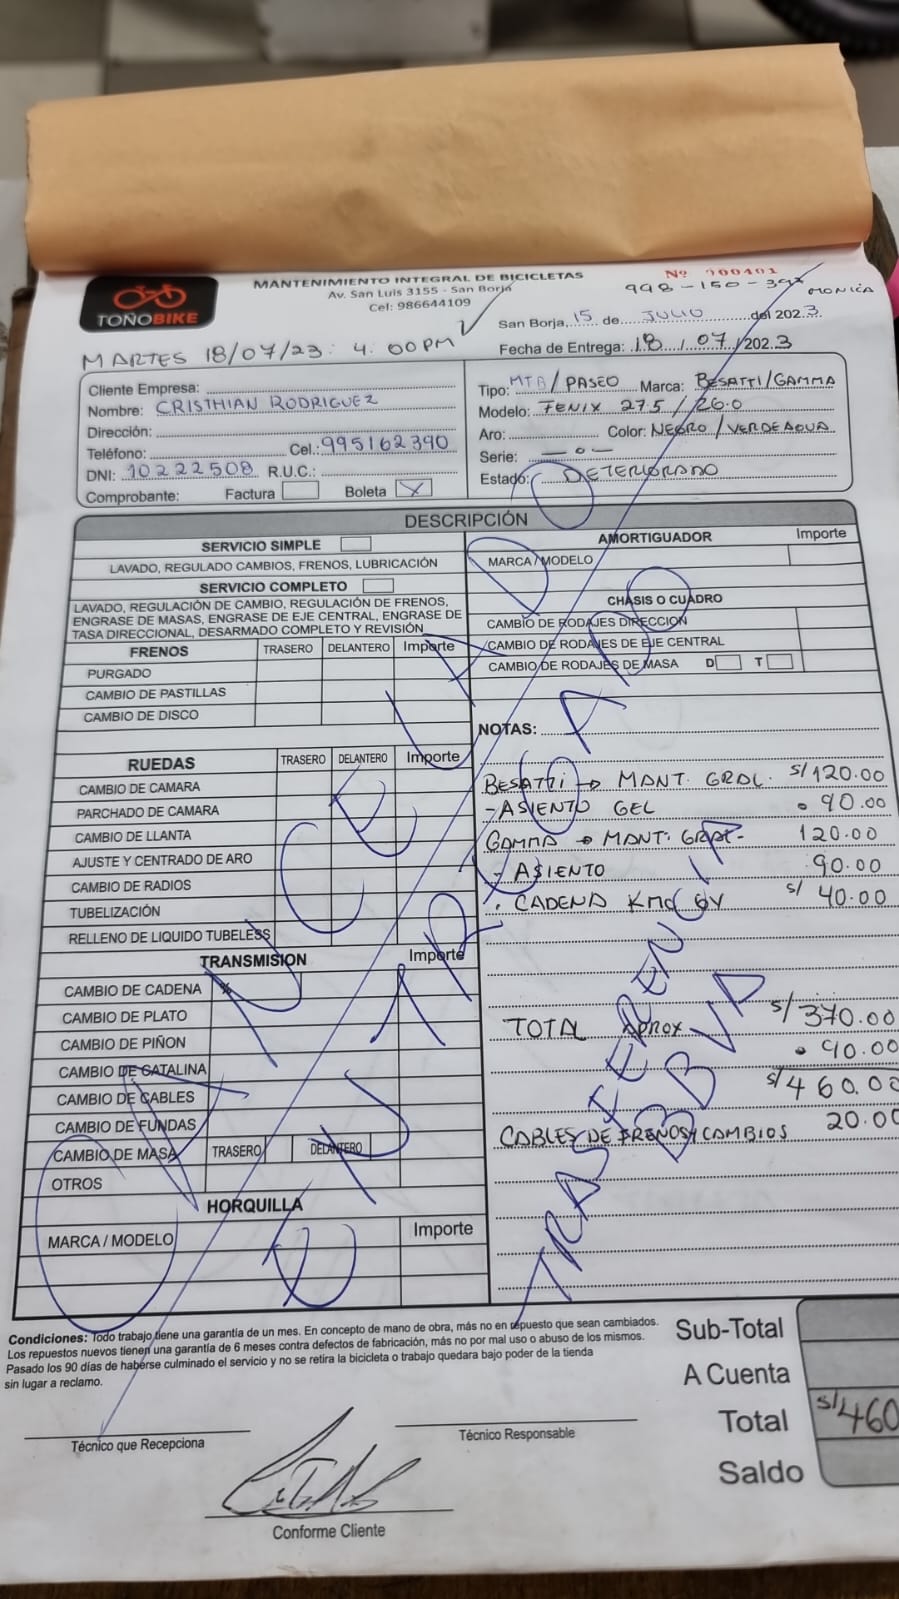 MANTENIMIENTO INTEGRAL DE BICICLETAS
Av. San Luis 3155 - San Borja
Cel: 986644109
TOÑOBIKE
Nº 000401
998-150-397
MONICA
San Borja, 15 de JULIO del 2023
MARTES 18/07/23: 4:00PM
Fecha de Entrega: 18/07/2023
Cliente Empresa:
Nombre: CRISTHIAN RODRIGUEZ
Dirección:
Teléfono: Cel.: 995162390
DNI: 10222508 R.U.C.:
Comprobante: Factura Boleta X
Tipo: MTB/PASEO Marca: BESATTI/GAMMA
Modelo: FENIX 27.5 / 26.0
Aro: Color: NEGRO/VERDE AGUA
Serie: — o —
Estado: DETERIORADO
DESCRIPCIÓN
SERVICIO SIMPLE
LAVADO, REGULADO CAMBIOS, FRENOS, LUBRICACIÓN
SERVICIO COMPLETO
LAVADO, REGULACIÓN DE CAMBIO, REGULACIÓN DE FRENOS,
ENGRASE DE MASAS, ENGRASE DE EJE CENTRAL, ENGRASE DE
TASA DIRECCIONAL, DESARMADO COMPLETO Y REVISIÓN
FRENOS TRASERO DELANTERO Importe
PURGADO
CAMBIO DE PASTILLAS
CAMBIO DE DISCO
RUEDAS TRASERO DELANTERO Importe
CAMBIO DE CAMARA
PARCHADO DE CAMARA
CAMBIO DE LLANTA
AJUSTE Y CENTRADO DE ARO
CAMBIO DE RADIOS
TUBELIZACIÓN
RELLENO DE LIQUIDO TUBELESS
TRANSMISION Importe
CAMBIO DE CADENA
CAMBIO DE PLATO
CAMBIO DE PIÑON
CAMBIO DE CATALINA
CAMBIO DE CABLES
CAMBIO DE FUNDAS
CAMBIO DE MASA TRASERO DELANTERO
OTROS
HORQUILLA
MARCA / MODELO Importe
AMORTIGUADOR Importe
MARCA / MODELO
CHASIS O CUADRO
CAMBIO DE RODAJES DIRECCION
CAMBIO DE RODAJES DE EJE CENTRAL
CAMBIO DE RODAJES DE MASA D T
NOTAS:
BESATTI → MANT. GRAL. S/120.00
- ASIENTO GEL 90.00
GAMMA → MANT. GRAL - 120.00
- ASIENTO 90.00
. CADENA KMC 8V S/ 40.00
TOTAL APROX S/370.00
90.00
S/460.00
CABLES DE FRENOS Y CAMBIOS 20.00
CANCELADO
ENTREGADO
TRASFERENCIA
BBVA
Condiciones: Todo trabajo tiene una garantía de un mes. En concepto de mano de obra, más no en repuesto que sean cambiados.
Los repuestos nuevos tienen una garantía de 6 meses contra defectos de fabricación, más no por mal uso o abuso de los mismos.
Pasado los 90 días de haberse culminado el servicio y no se retira la bicicleta o trabajo quedara bajo poder de la tienda
sin lugar a reclamo.
Sub-Total
A Cuenta
Total S/460
Saldo
Técnico que Recepciona
Técnico Responsable
Conforme Cliente